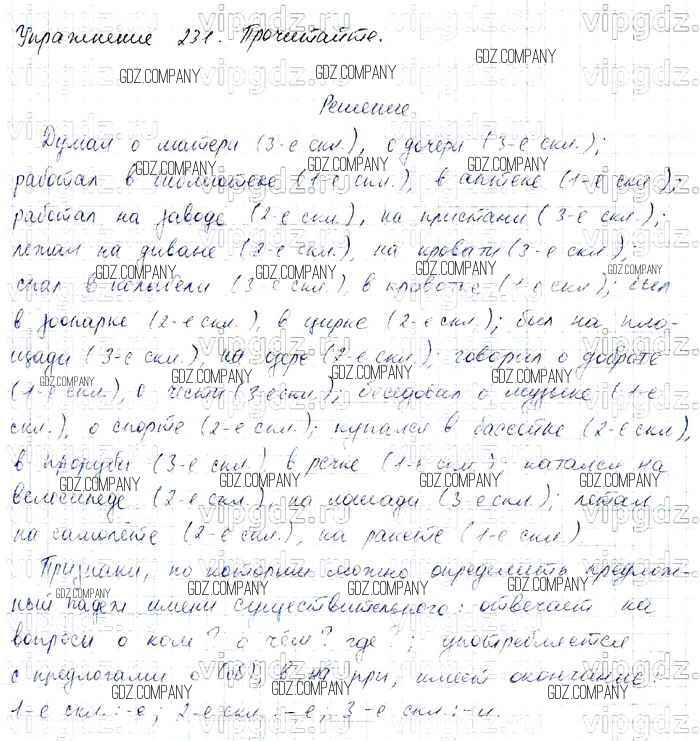 Упражнение 231. Прочитайте.
Решение
Думал о матери (3-е скл.), о дочери (3-е скл.);
работал в библиотеке (1-е скл.), в аптеке (1-е скл.);
работал на заводе (2-е скл.), на пристани (3-е скл.);
лежал на диване (2-е скл.), на кровати (3-е скл.);
спал в колыбели (3-е скл.), в кроватке (1-е скл.); был
в зоопарке (2-е скл.), в цирке (2-е скл.); был на пло-
щади (3-е скл.), на озере (2-е скл.); говорил о доброте
(1-е скл.), о чести (3-е скл.); беседовал о музыке (1-е
скл.), о спорте (2-е скл.); купался в бассейне (2-е скл.),
в проруби (3-е скл.), в речке (1-е скл.); катался на
велосипеде (2-е скл.), на лошади (3-е скл.); летал
на самолёте (2-е скл.), на ракете (1-е скл.)
Признаки, по которым можно определить предлож-
ный падеж имени существительного: отвечает на
вопросы о ком? о чём? где?; употребляется
с предлогами о (об), в, на, при, имеет окончание:
1-е скл.: -е; 2-е скл.: -е; 3-е скл.: -и.
GDZ.COMPANY
vipgdz.ru